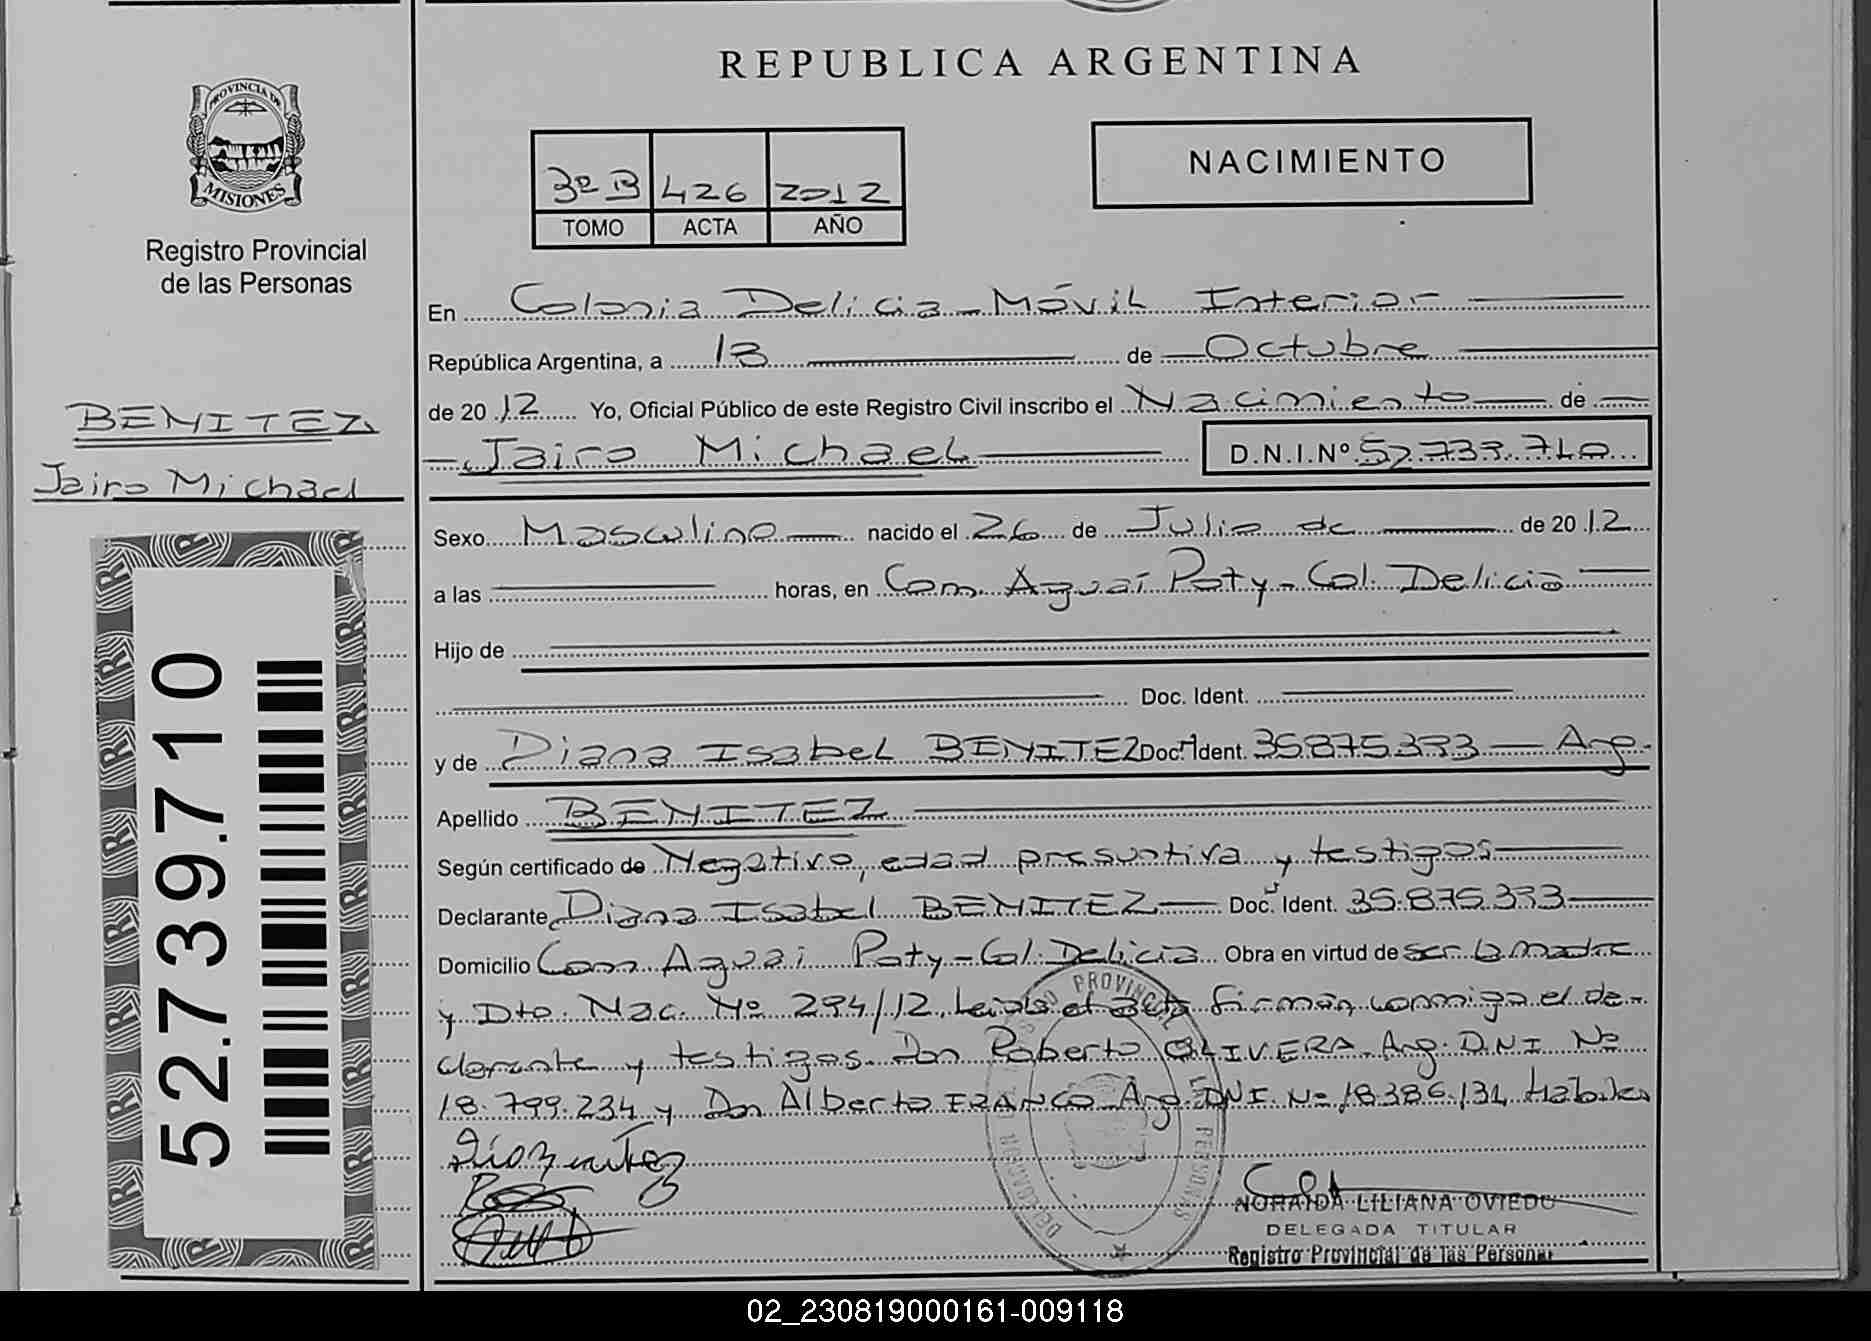 REPUBLICA ARGENTINA
PROVINCIA DE
MISIONES
Registro Provincial
de las Personas
3º B 426 2012
TOMO ACTA AÑO
NACIMIENTO
BENITEZ
Jairo Michael
52.739.710
En Colonia Delicia - Móvil Interior
República Argentina, a 13 de Octubre
de 2012 Yo, Oficial Público de este Registro Civil inscribo el Nacimiento de
Jairo Michael D.N.I.Nº 52.739.710
Sexo Masculino nacido el 26 de Julio de de 2012
a las horas, en Com. Aguaí Poty - Col. Delicia
Hijo de
Doc. Ident.
y de Diana Isabel BENITEZ Doc. Ident. 35.875.333 - Arg.
Apellido BENITEZ
Según certificado de Negativo, edad presuntiva y testigos
Declarante Diana Isabel BENITEZ Doc. Ident. 35.875.333
Domicilio Com. Aguai Poty - Col. Delicia Obra en virtud de ser la madre
y Dto. Nac. Nº 294/12. Leida el acta firman conmigo el de-
clarante y testigos Don Roberto OLIVERA. Arg. D.N.I. Nº
18.799.234 y Don Alberto FRANCO Arg. DNI. Nº 18.386.134 Habiles
NORAIDA LILIANA OVIEDO
DELEGADA TITULAR
Registro Provincial de las Personas
02_230819000161-009118